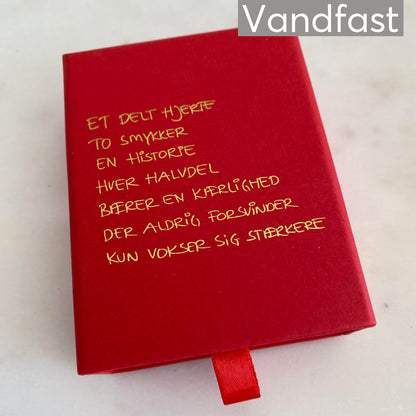 Vandfast
ET DELT HJERTE
TO SMYKKER
EN HISTORIE
HVER HALVDEL
BÆRER EN KÆRLIGHED
DER ALDRIG FORSVINDER
KUN VOKSER SIG STÆRKERE